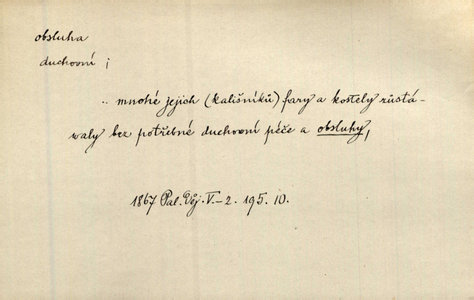 obsluha
duchovní ;
.. mnohé jejich (kališníků) fary a kostely zůstá-
waly bez potřebné duchovní péče a obsluhy,
1867 Pal. Děj. V-2. 195. 10.